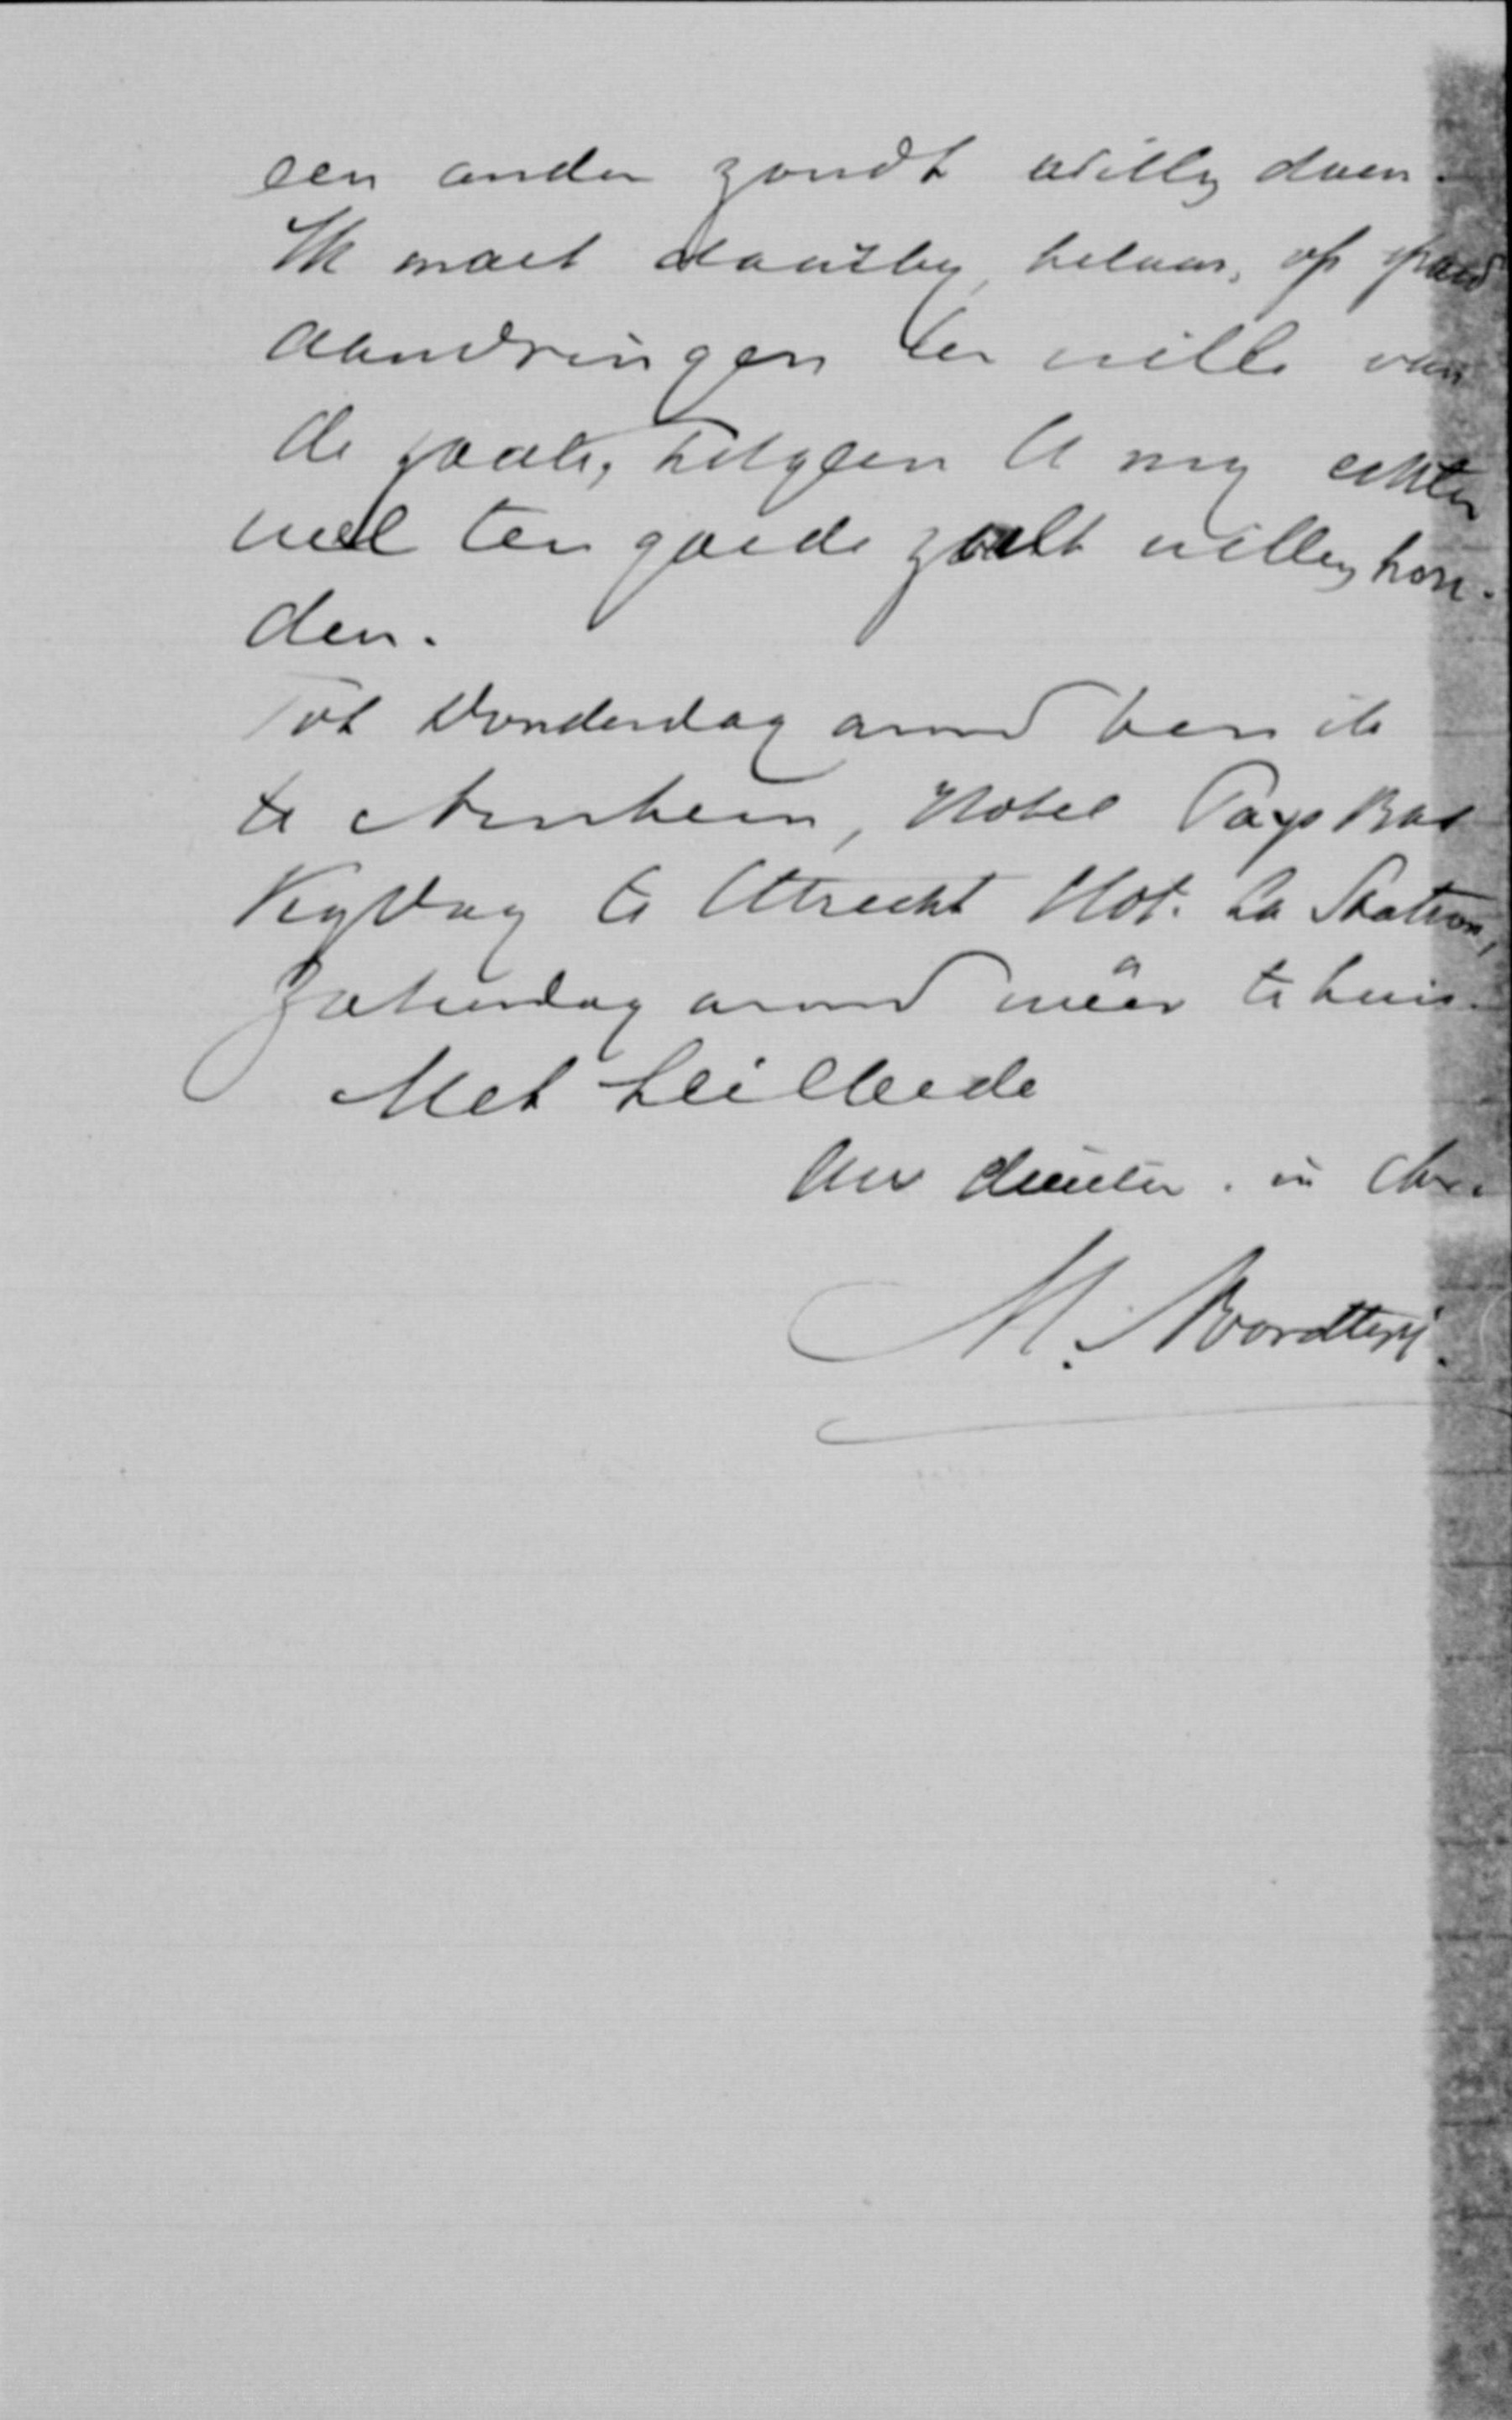 een ander zoudt willen doen.
Ik moet daarby, helaas, op spoed
aandringen ter wille van
de zaak, hetgeen U my echter
wel ten goede zult willen hou-
den.
Tot Donderdag avond ben ik
te Arnhem, Hotel Pays Bas
Vrydag te Utrecht Hot. La Station,
Zaturdag avond weêr te huis.
Met heilbede
Uw dienstw. in Chr.
M. Noordtzij.